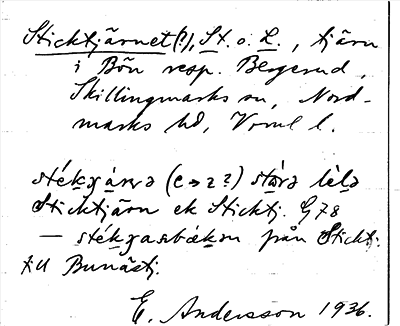 Sticktjärnet(?), St. o. L., tjärn
i Bön resp. Bergerud,
Skillingmarks sn, Nord-
marks hd, Vrml l.
stékɣánə (e→2?) stó̱rə lèlə
Sticktjärn ek Sticktj. G78
— stékɣanbækən från Sticktj.
till Bunästj.
E. Andersson 1936.